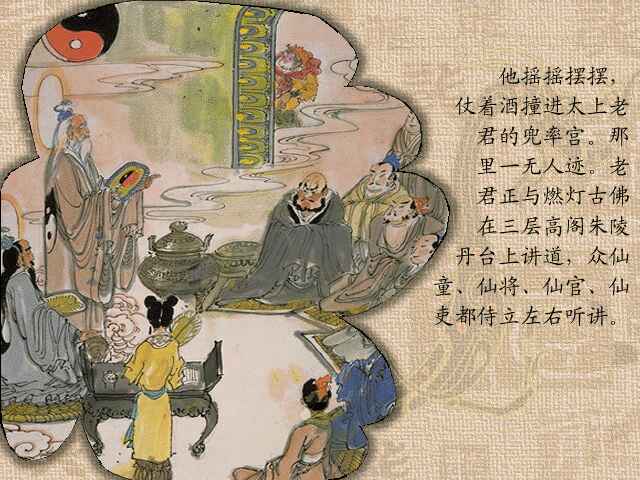 他摇摇摆摆，
仗着酒撞进太上老
君的兜率宫。那
里一无人迹。老
君正与燃灯古佛
在三层高阁朱陵
丹台上讲道，众仙
童、仙将、仙官、仙
吏都侍立左右听讲。